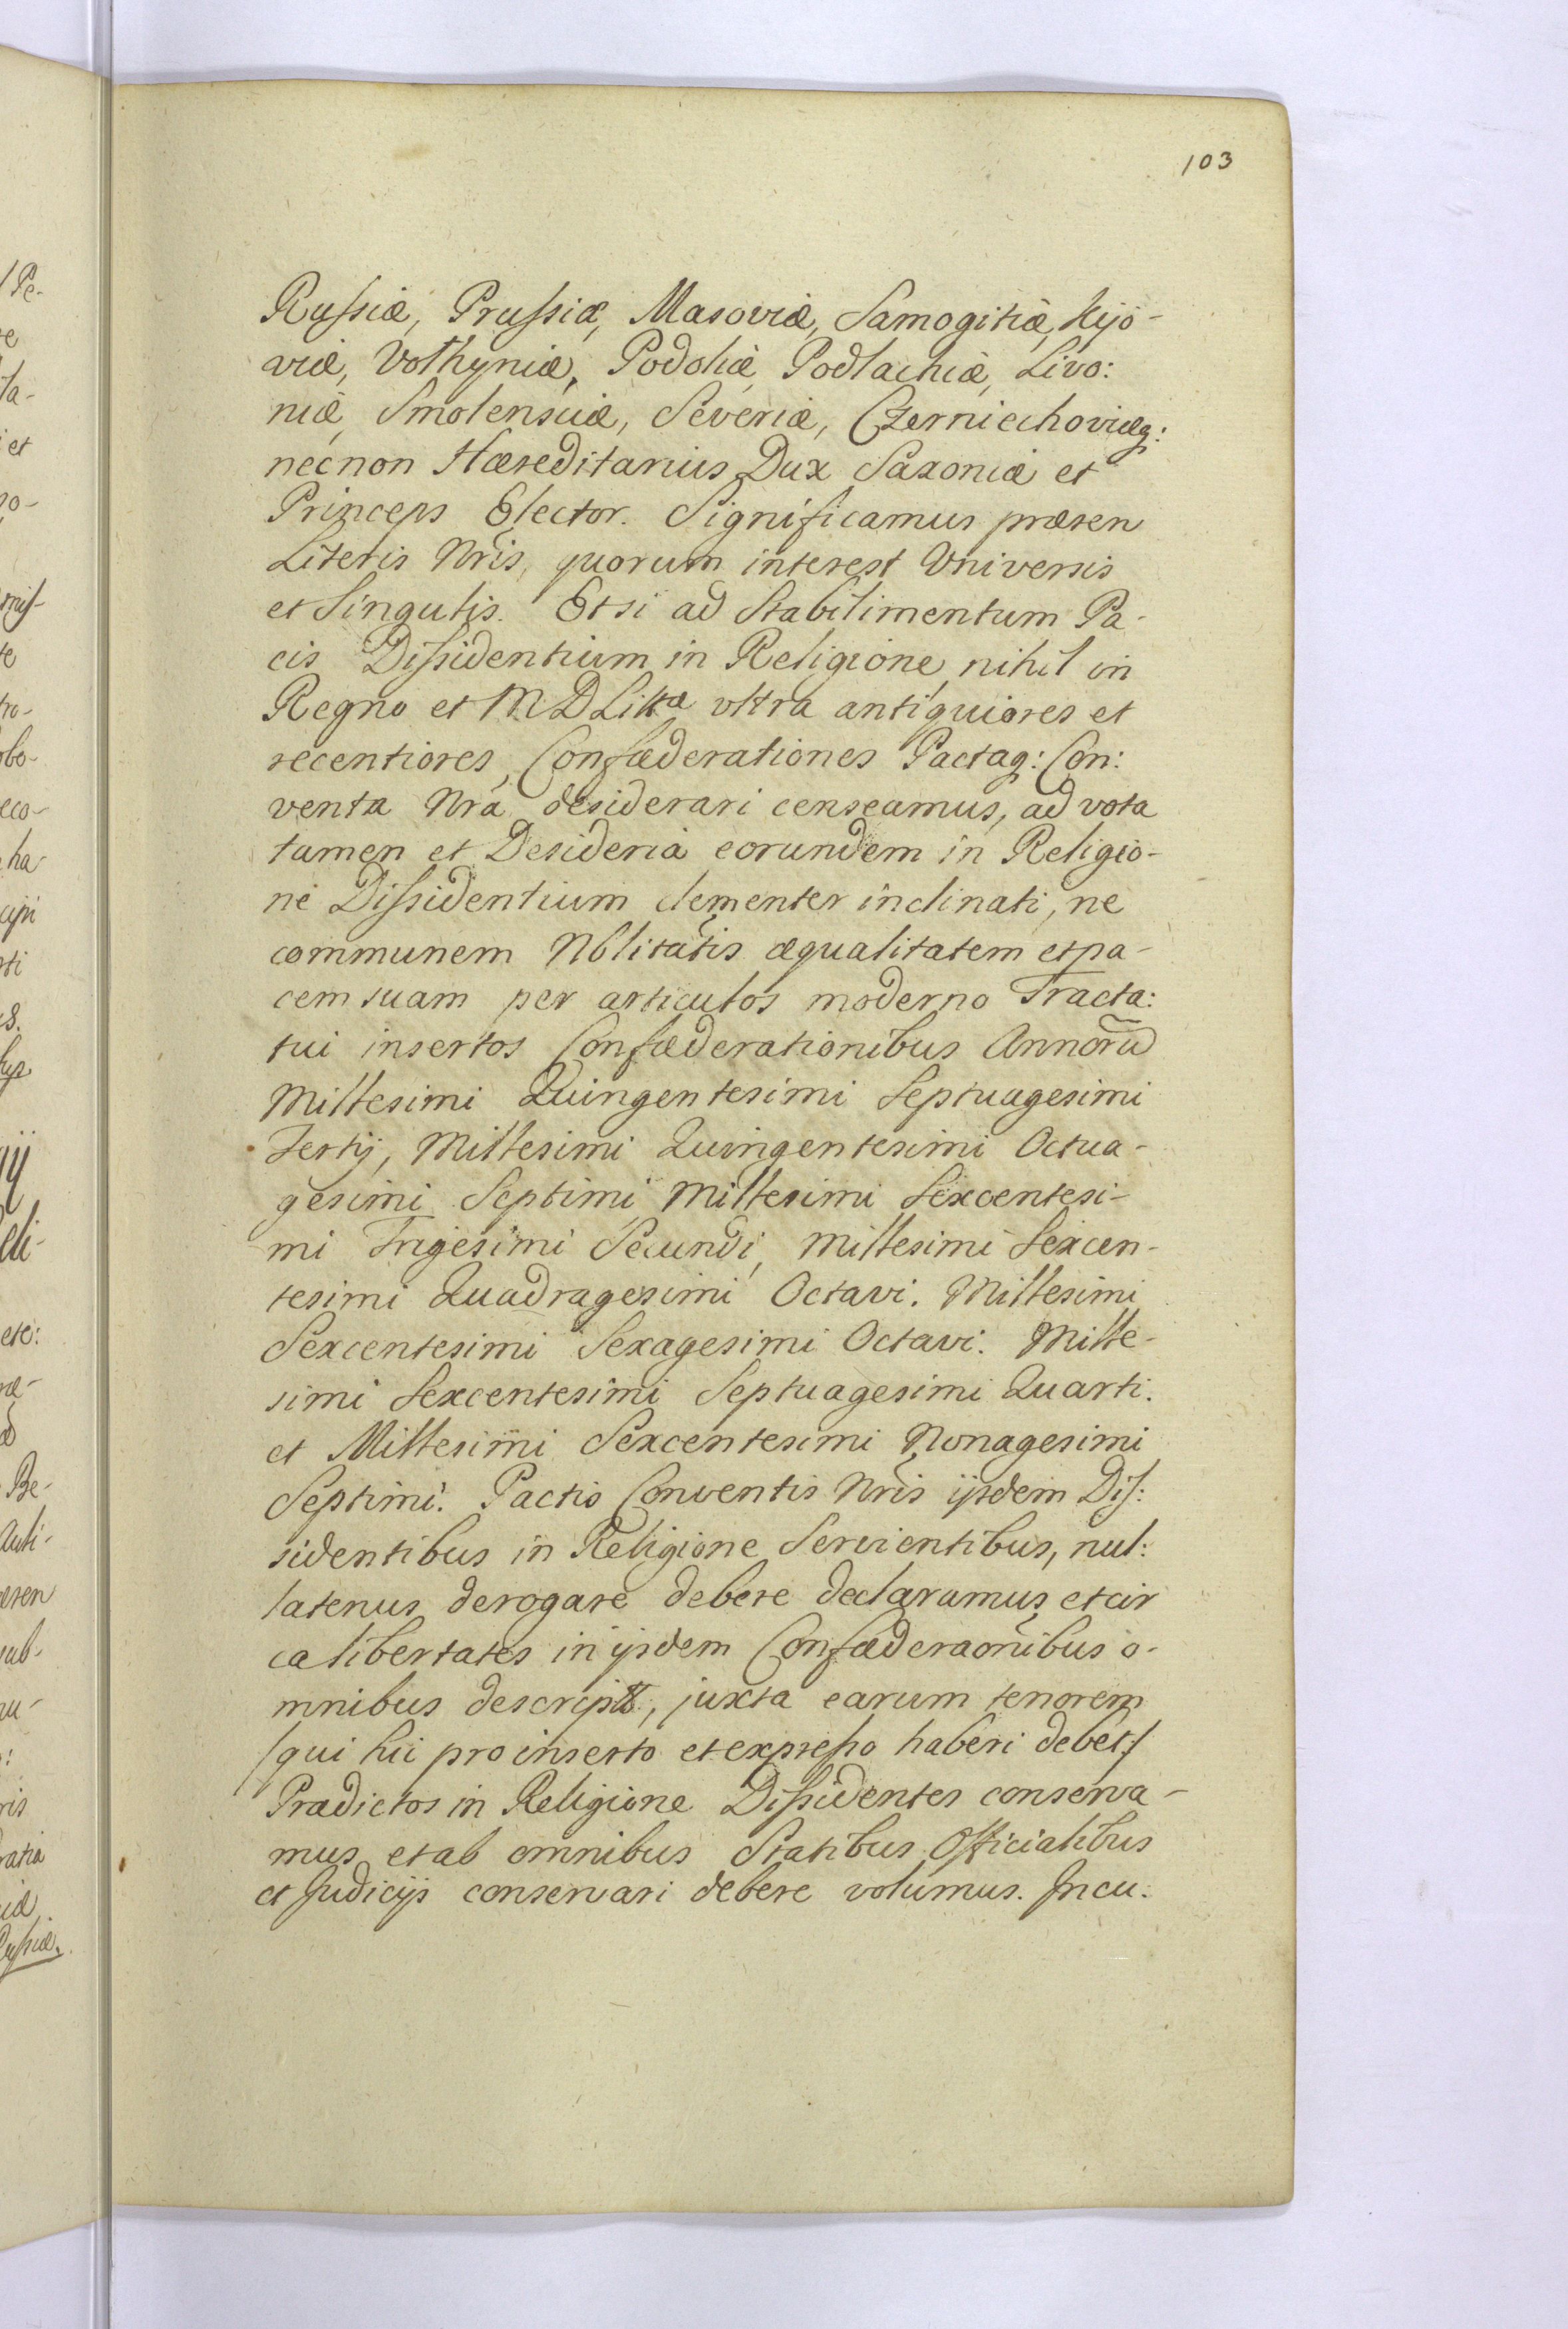 103
Russiæ, Prussiæ, Masoviæ, Samogitiæ, Kijo-
viæ, Volhyniæ, Podoliæ, Podlachiæ, Livo:
niæ, Smolensciæ, Severiæ, Czerniechoviæq:
necnon Hæreditarius Dux Saxoniæ et
Princeps Elector. Significamus præsen
Literis Nris, quorum interest Universis
et Singulis. Etsi ad Stabilimentum Pa-
cis Dissidentium in Religione nihil in
Regno et M D Littæ ultra antiquiores et
recentiores, Confæderationes Pactaq: Con:
venta Nra desiderari censeamus, ad vota
tamen et Desideria eorundem in Religio-
ne Dissidentium clementer inclinati, ne
communem Nblitatis æqualitatem et pa-
cem suam per articulos moderno Tracta:
tui insertos Confæderationibus Annorũ
Millesimi Quingentesimi Septuagesimi
Tertij, Millesimi Quingentesimi Octua-
gesimi Septimi Millesimi Sexcentesi-
mi Trigesimi Secundi, Millesimi Sexcen-
tesimi Quadragesimi Octavi. Millesimi
Sexcentesimi Sexagesimi Octavi. Mille-
simi Sexcentesimi Septuagesimi Quarti.
et Millesimi Sexcentesimi Nonagesimi
Septimi. Pactis Conventis Nris ijsdem Dis:
sidentibus in Religione Servientibus, nul:
latenus derogare debere declaramus et cir
ca libertates in ijsdem Confæderaonibus o-
mnibus descriptt:, juxta earum tenorem
/qui hic pro inserto et expresso haberi debet:/
Prædictos in Religione Dissidentes conserva-
mus et ab omnibus Statibus Officialibus
et Judicijs conservari debere volumus. Incu: